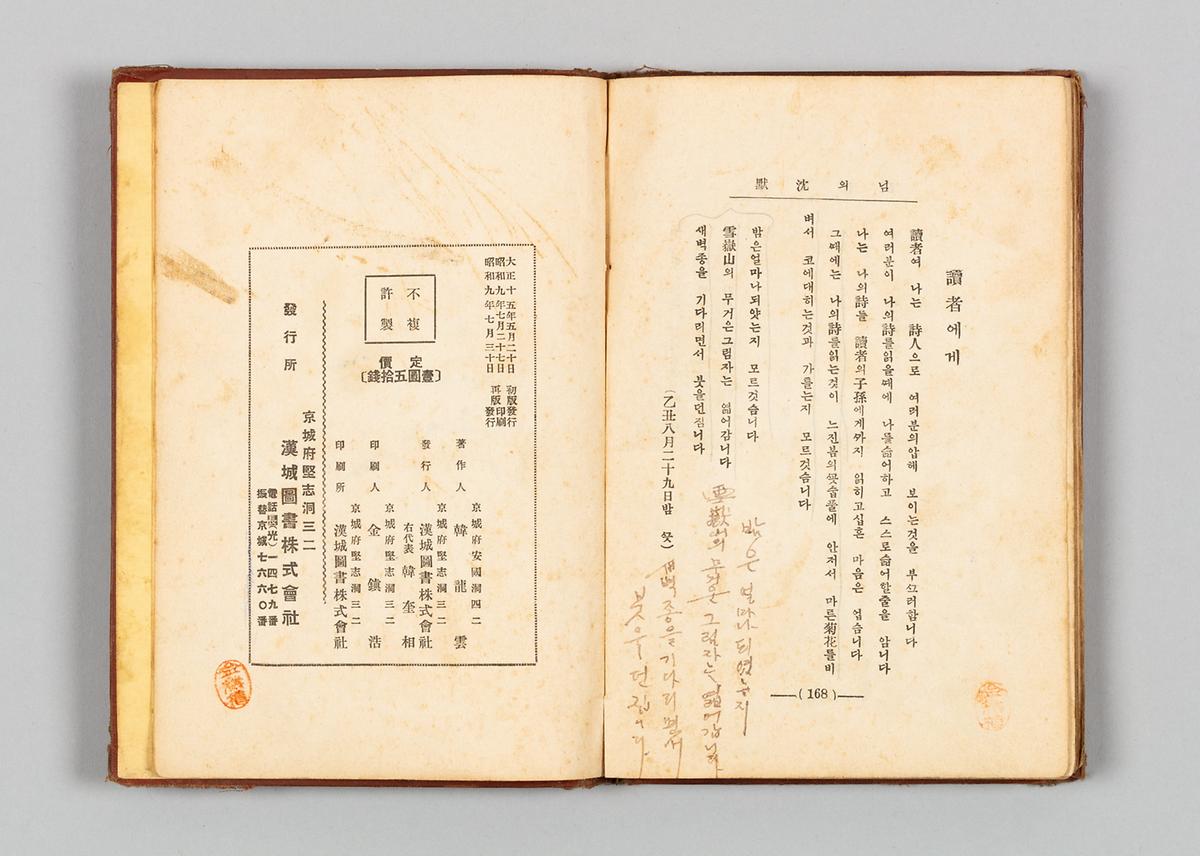 님의沈默
讀者에게
讀者여 나는 詩人으로 여러분의압헤 보이는것을 부끄러합니다
여러분이 나의詩를읽을때에 나를슯어하고 스스로슯어할줄을 암니다
나는 나의詩를 讀者의子孫에게까지 읽히고십흔 마음은 업슴니다
그때에는 나의詩를읽는것이 느진봄의꽃숩풀에 안저서 마른菊花를비
벼서 코에대히는것과 가를는지 모르것슴니다
밤은얼마나되얏는지 모르것슴니다
雪嶽山의 무거은그림자는 엷어감니다
새벽종을 기다리면서 붓을던짐니다
(乙丑八月二十九日밤 끗)
밤은 얼마나 되였는지
雪嶽山의 무거운 그림자는 엷어갑니다
새벽 종을 기다리면서
붓을 던집니다.
—(168)—
大正十五年五月二十日 初版發行
昭和九年七月二十七日 印刷
昭和九年七月三十日 再版發行
不複
許製
定價
〔壹圓五拾錢〕
京城府安國洞四二
著作人 韓龍雲
京城府堅志洞三二
漢城圖書株式會社
發行人 右代表 韓奎相
京城府堅志洞三二
印刷人 金鎭浩
京城府堅志洞三二
印刷所 漢城圖書株式會社
京城府堅志洞三二
發行所 漢城圖書株式會社
電話(光)一四七九番
振替京城七六六〇番